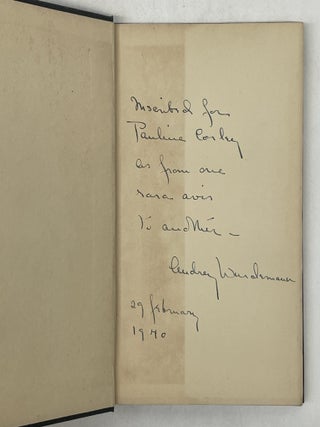 Inscribed for
Pauline Corley
as from one
rara avis
to another –
Audrey Wurdemann
29 february
1940